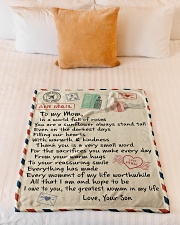 AIR MAIL
To my Mom,
In a world full of roses
You are a sunflower always stand tall
Even on the darkest days
Filling our hearts
With warmth & kindness
Thank you is a very small word
For the sacrifices you make every day
From your warm hugs
To your reassuring smile
Everything has made
Every moment of my life worthwhile
All that I am and hope to be
I owe to you, the greatest woman in my life
Love, Your Son